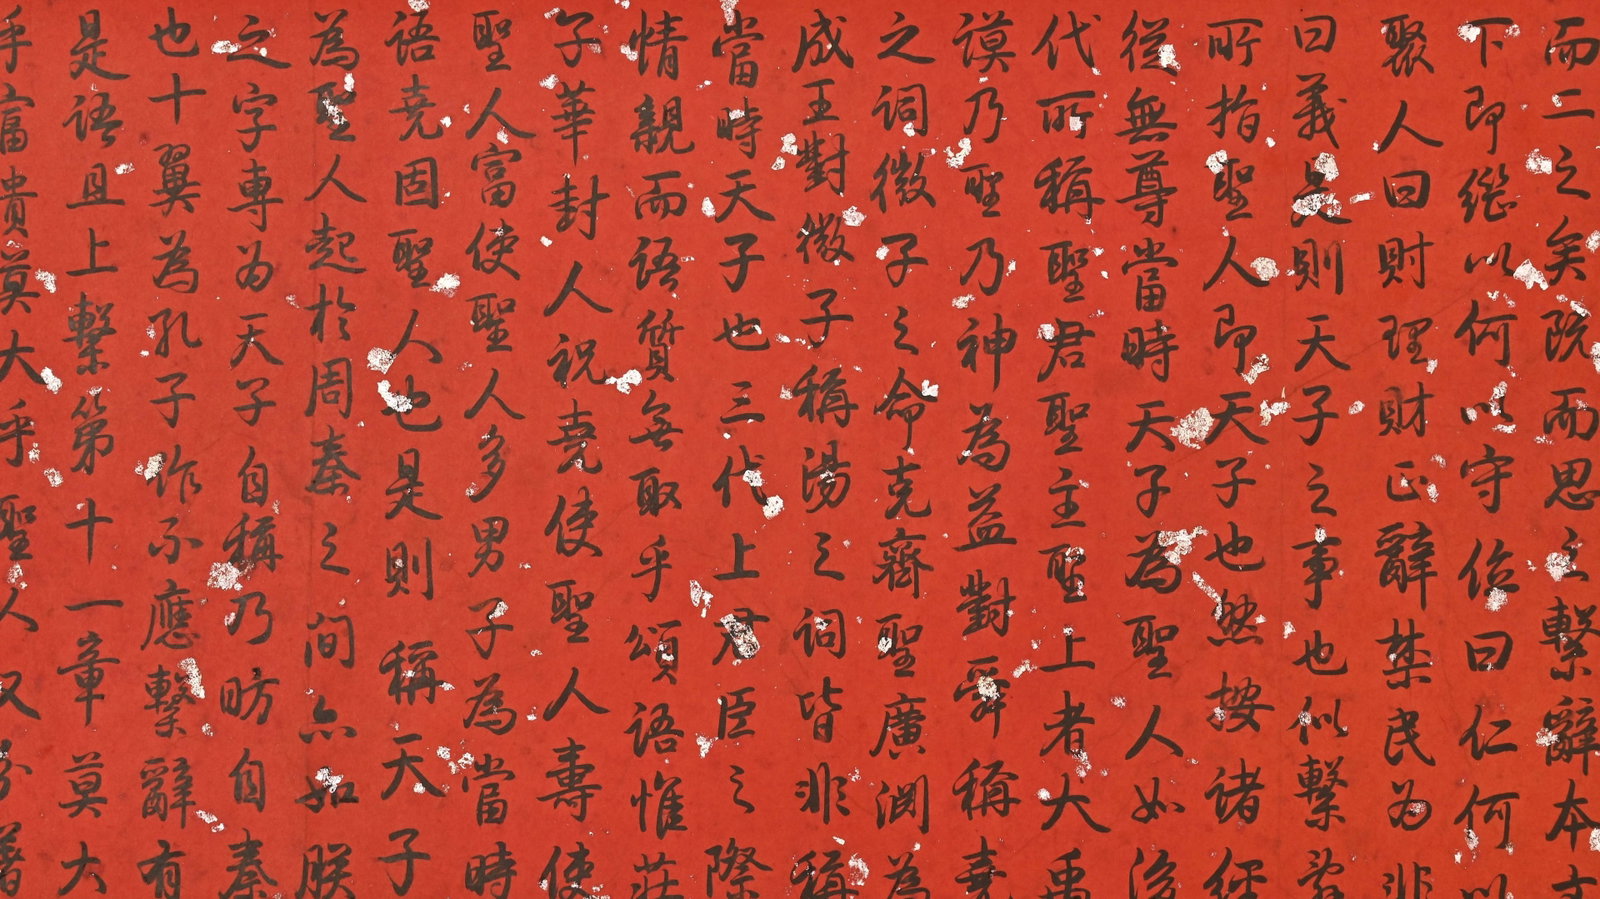 而二之矣既而思之繫辭本
下即繼以何以守位曰仁何以
聚人曰財理財正辭禁民為非
曰義是則天子之事也似繫
所指聖人即天子也然按諸經
從無尊當時天子為聖人如後
代所稱聖君聖主聖上者大禹
謨乃聖乃神為益對舜稱堯
之詞微子之命克齊聖廣淵為
成王對微子稱湯之詞皆非稱
當時天子也三代上君臣之際
情親而語質無取乎頌語惟莊
子華封人祝堯使聖人壽使
聖人富使聖人多男子為當時
語堯固聖人也是則稱天子
為聖人起於周秦之間亦如朕
之字專為天子自稱乃昉自秦
也十翼為孔子作不應繫辭有
是語且上繫第十一章莫大
乎富貴莫大乎聖人又